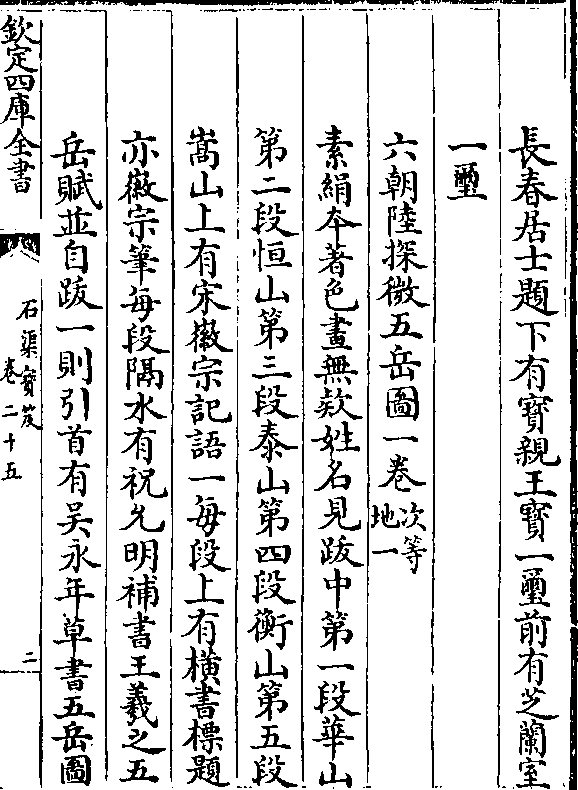 長春居士題下有寶親王寶一璽前有芝蘭室
一璽
六朝陸探微五岳圖一卷次等地一
素絹本著色畫無款姓名見跋中第一段華山
第二段恒山第三段泰山第四段衡山第五段
嵩山上有宋徽宗記語一每段上有橫書標題
亦徽宗筆每段隔水有祝允明補書王羲之五
岳賦並自跋一則引首有吳永年草書五岳圖
欽定四庫全書
石渠寶笈
卷二十五
二